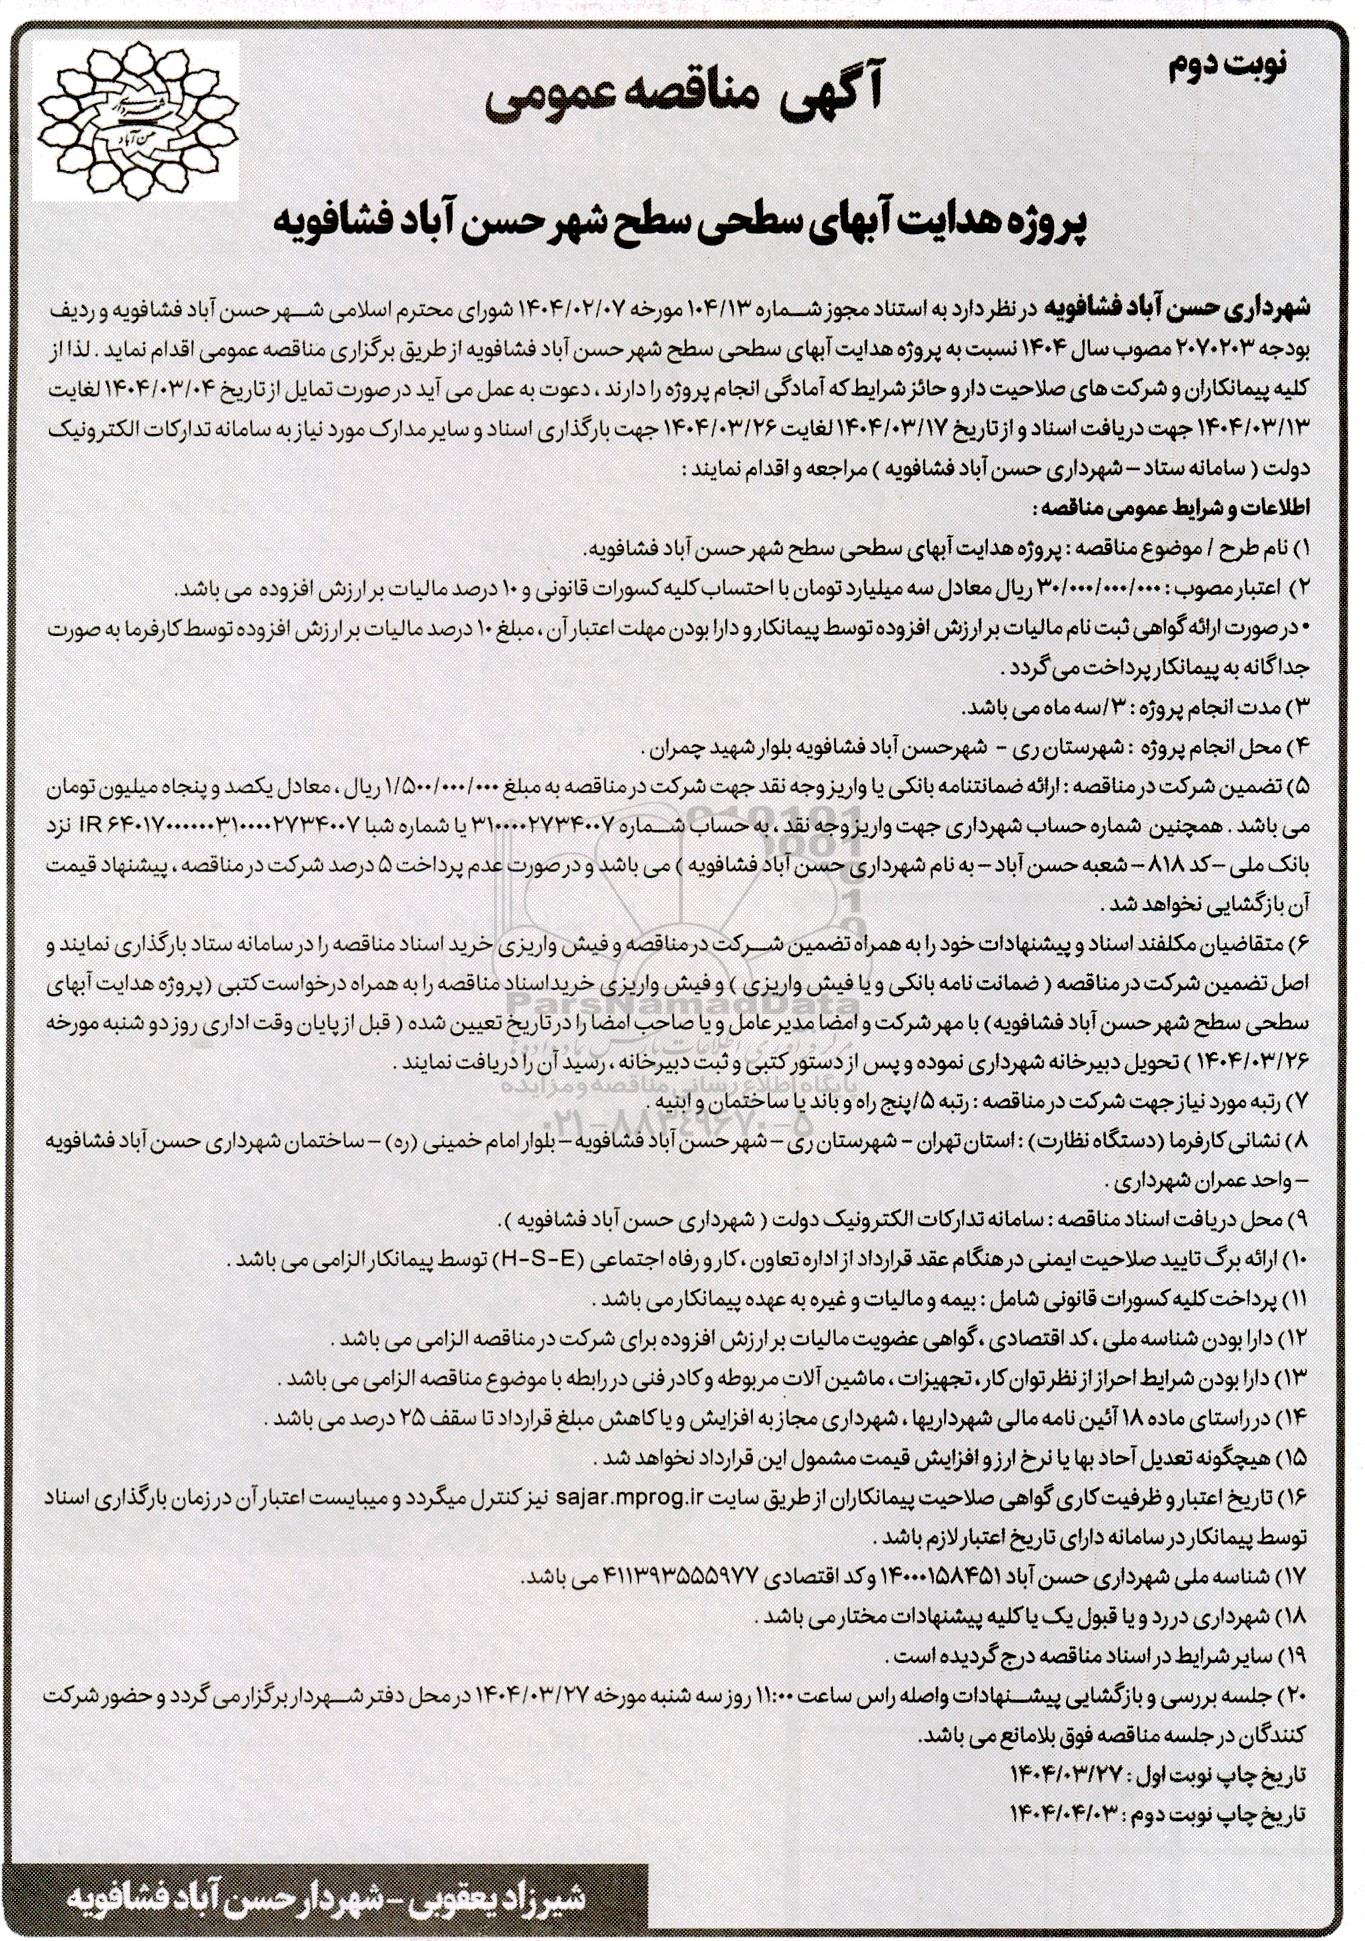 نوبت دوم
آگهی مناقصه عمومی
شهرداری
حسن آباد
پروژه هدایت آبهای سطحی سطح شهر حسن آباد فشافویه
شهرداری حسن آباد فشافویه در نظر دارد به استناد مجوز شماره ۱۰۴/۱۳ مورخه ۱۴۰۴/۰۲/۰۷ شورای محترم اسلامی شهر حسن آباد فشافویه و ردیف
بودجه ۲۰۷۰۲۰۳ مصوب سال ۱۴۰۴ نسبت به پروژه هدایت آبهای سطحی سطح شهر حسن آباد فشافویه از طریق برگزاری مناقصه عمومی اقدام نماید . لذا از
کلیه پیمانکاران و شرکت های صلاحیت دار و حائز شرایط که آمادگی انجام پروژه را دارند ، دعوت به عمل می آید در صورت تمایل از تاریخ ۱۴۰۴/۰۳/۰۴ لغایت
۱۴۰۴/۰۳/۱۳ جهت دریافت اسناد و از تاریخ ۱۴۰۴/۰۳/۱۷ لغایت ۱۴۰۴/۰۳/۲۶ جهت بارگذاری اسناد و سایر مدارک مورد نیاز به سامانه تدارکات الکترونیک
دولت ( سامانه ستاد – شهرداری حسن آباد فشافویه ) مراجعه و اقدام نمایند :
اطلاعات و شرایط عمومی مناقصه :
۱) نام طرح / موضوع مناقصه : پروژه هدایت آبهای سطحی سطح شهر حسن آباد فشافویه.
۲) اعتبار مصوب : ۳۰/۰۰۰/۰۰۰/۰۰۰ ریال معادل سه میلیارد تومان با احتساب کلیه کسورات قانونی و ۱۰ درصد مالیات بر ارزش افزوده می باشد.
• در صورت ارائه گواهی ثبت نام مالیات بر ارزش افزوده توسط پیمانکار و دارا بودن مهلت اعتبار آن ، مبلغ ۱۰ درصد مالیات بر ارزش افزوده توسط کارفرما به صورت
جداگانه به پیمانکار پرداخت می گردد .
۳) مدت انجام پروژه : ۳/سه ماه می باشد.
۴) محل انجام پروژه : شهرستان ری - شهرحسن آباد فشافویه بلوار شهید چمران .
۵) تضمین شرکت در مناقصه : ارائه ضمانتنامه بانکی یا واریز وجه نقد جهت شرکت در مناقصه به مبلغ ۱/۵۰۰/۰۰۰/۰۰۰ ریال ، معادل یکصد و پنجاه میلیون تومان
می باشد . همچنین شماره حساب شهرداری جهت واریز وجه نقد ، به حساب شماره ۳۱۰۰۰۰۲۷۳۴۰۰۷ یا شماره شبا IR ۶۴۰۱۷۰۰۰۰۰۰۰۳۱۰۰۰۰۲۷۳۴۰۰۷ نزد
بانک ملی – کد ۸۱۸ – شعبه حسن آباد – به نام شهرداری حسن آباد فشافویه ) می باشد و در صورت عدم پرداخت ۵ درصد شرکت در مناقصه ، پیشنهاد قیمت
آن بازگشایی نخواهد شد .
۶) متقاضیان مکلفند اسناد و پیشنهادات خود را به همراه تضمین شرکت در مناقصه و فیش واریزی خرید اسناد مناقصه را در سامانه ستاد بارگذاری نمایند و
اصل تضمین شرکت در مناقصه ( ضمانت نامه بانکی و یا فیش واریزی ) و فیش واریزی خرید اسناد مناقصه را به همراه درخواست کتبی (پروژه هدایت آبهای
سطحی سطح شهر حسن آباد فشافویه) با مهر شرکت و امضا مدیر عامل و یا صاحب امضا را در تاریخ تعیین شده ( قبل از پایان وقت اداری روز دو شنبه مورخه
۱۴۰۴/۰۳/۲۶ ) تحویل دبیرخانه شهرداری نموده و پس از دستور کتبی و ثبت دبیرخانه ، رسید آن را دریافت نمایند .
ParsNamadData
پایگاه اطلاع رسانی مناقصه و مزایده
۰۲۱-۸۸۳۴۹۶۷۰-۵
۷) رتبه مورد نیاز جهت شرکت در مناقصه : رتبه ۵/پنج راه و باند یا ساختمان و ابنیه .
۸) نشانی کارفرما (دستگاه نظارت) : استان تهران - شهرستان ری – شهر حسن آباد فشافویه – بلوار امام خمینی (ره) – ساختمان شهرداری حسن آباد فشافویه
– واحد عمران شهرداری .
۹) محل دریافت اسناد مناقصه : سامانه تدارکات الکترونیک دولت ( شهرداری حسن آباد فشافویه ).
۱۰) ارائه برگ تایید صلاحیت ایمنی در هنگام عقد قرارداد از اداره تعاون ، کار و رفاه اجتماعی (H-S-E) توسط پیمانکار الزامی می باشد .
۱۱) پرداخت کلیه کسورات قانونی شامل : بیمه و مالیات و غیره به عهده پیمانکار می باشد .
۱۲) دارا بودن شناسه ملی ، کد اقتصادی ، گواهی عضویت مالیات بر ارزش افزوده برای شرکت در مناقصه الزامی می باشد .
۱۳) دارا بودن شرایط احراز از نظر توان کار ، تجهیزات ، ماشین آلات مربوطه و کادر فنی در رابطه با موضوع مناقصه الزامی می باشد .
۱۴) در راستای ماده ۱۸ آئین نامه مالی شهرداریها ، شهرداری مجاز به افزایش و یا کاهش مبلغ قرارداد تا سقف ۲۵ درصد می باشد .
۱۵) هیچگونه تعدیل آحاد بها یا نرخ ارز و افزایش قیمت مشمول این قرارداد نخواهد شد .
۱۶) تاریخ اعتبار و ظرفیت کاری گواهی صلاحیت پیمانکاران از طریق سایت sajar.mprog.ir نیز کنترل میگردد و میبایست اعتبار آن در زمان بارگذاری اسناد
توسط پیمانکار در سامانه دارای تاریخ اعتبار لازم باشد .
۱۷) شناسه ملی شهرداری حسن آباد ۱۴۰۰۰۱۵۸۴۵۱ و کد اقتصادی ۴۱۱۳۹۳۵۵۵۹۷۷ می باشد.
۱۸) شهرداری در رد و یا قبول یک یا کلیه پیشنهادات مختار می باشد .
۱۹) سایر شرایط در اسناد مناقصه درج گردیده است .
۲۰) جلسه بررسی و بازگشایی پیشنهادات واصله راس ساعت ۱۱:۰۰ روز سه شنبه مورخه ۱۴۰۴/۰۳/۲۷ در محل دفتر شهردار برگزار می گردد و حضور شرکت
کنندگان در جلسه مناقصه فوق بلامانع می باشد.
تاریخ چاپ نوبت اول : ۱۴۰۴/۰۳/۲۷
تاریخ چاپ نوبت دوم : ۱۴۰۴/۰۴/۰۳
شیرزاد یعقوبی – شهردار حسن آباد فشافویه